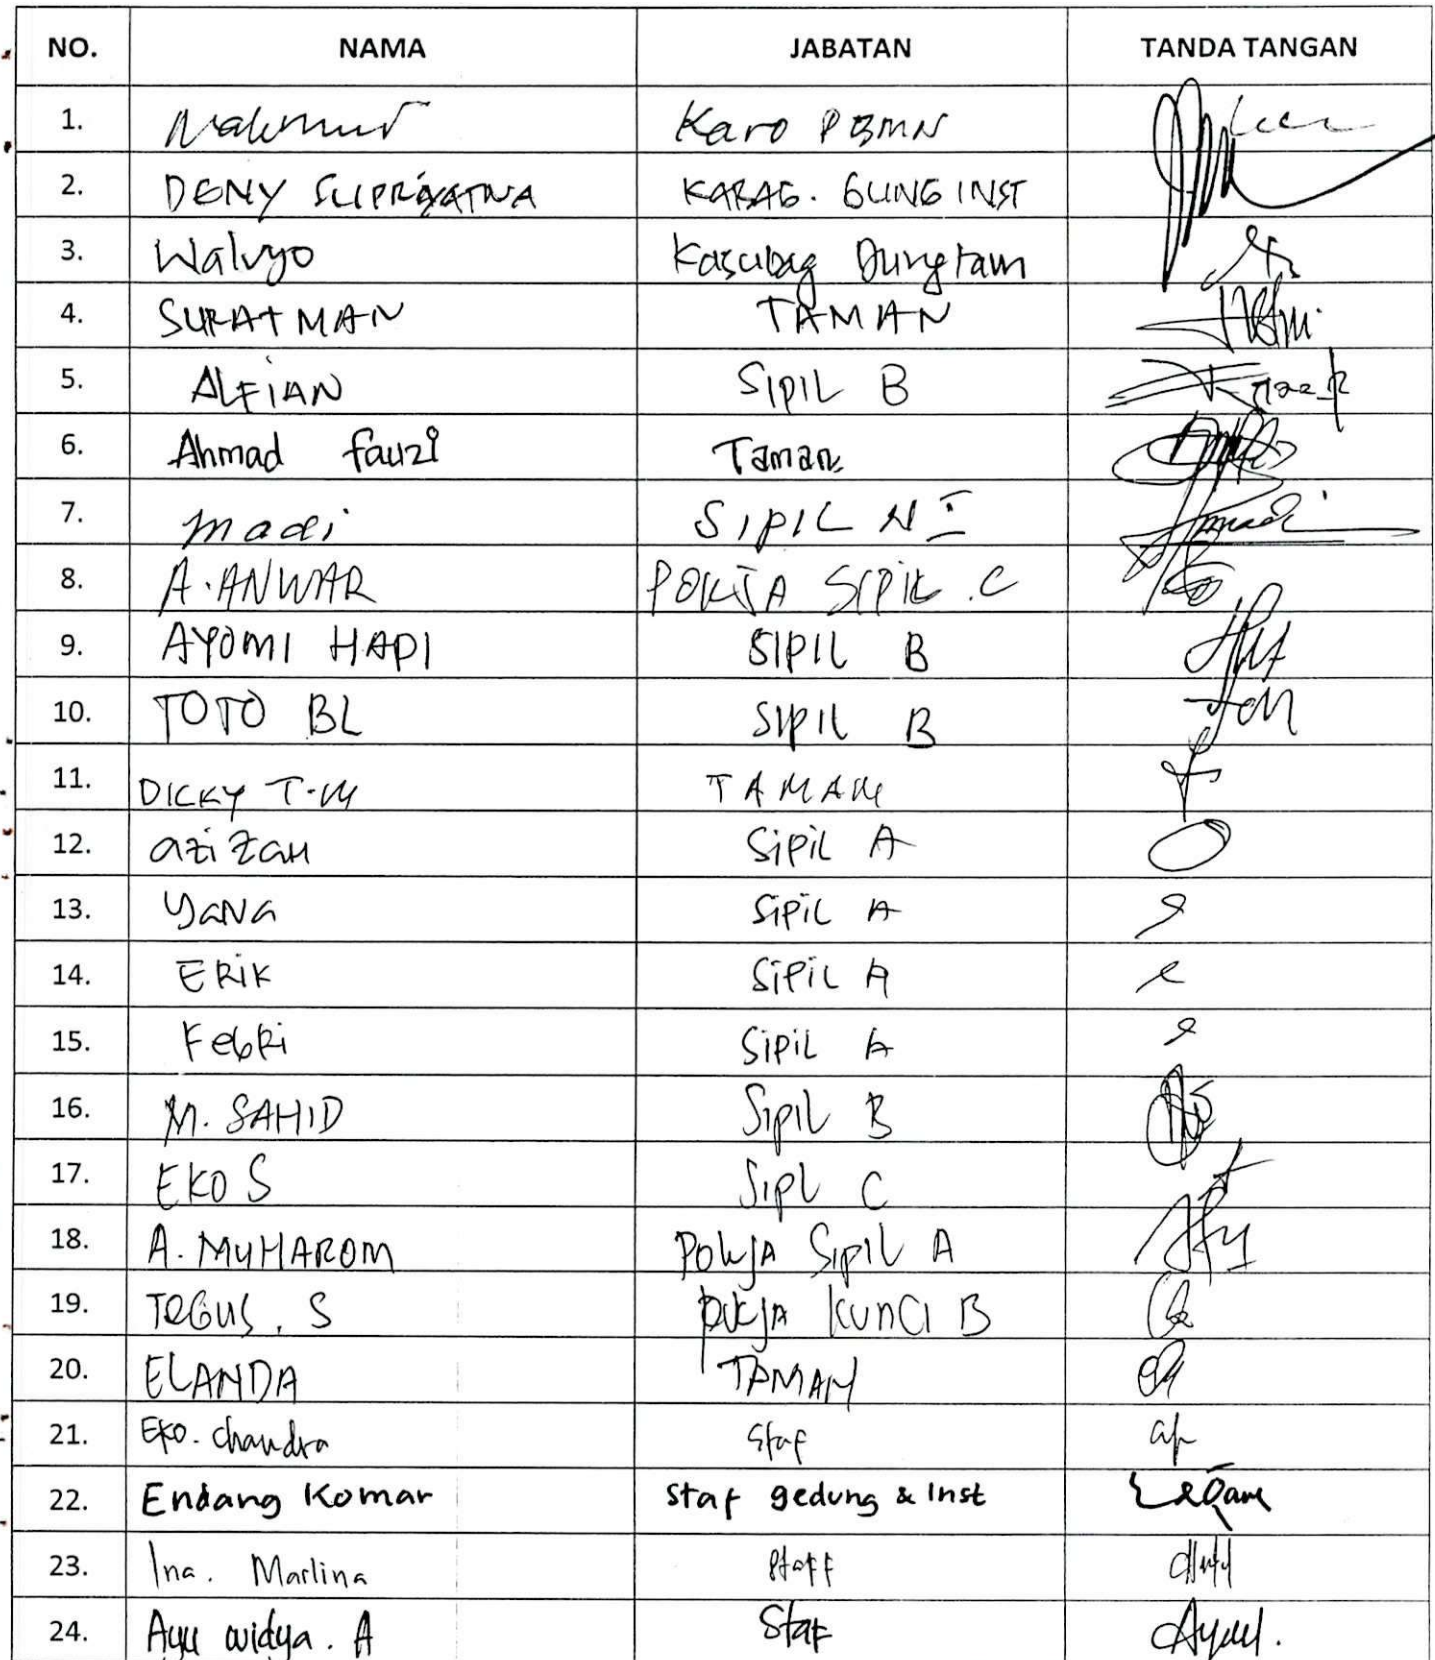 NO. NAMA JABATAN TANDA TANGAN
1. Makmur Karo PBMN
2. DENY SUPRIYATNA KABAG. GUNG INST
3. Waluyo Kasubag Gungtam
4. SURATMAN TAMAN
5. ALFIAN SIPIL B
6. Ahmad fauzi Taman
7. madi SIPIL N I
8. A. ANWAR POKJA SIPIL .C
9. AYOMI HADI SIPIL B
10. TOTO BL SIPIL B
11. DICKY T.M TAMAN
12. azizan Sipil A
13. YaNa SiPiL A
14. ERiK SiPiL A
15. FebRi SiPiL A
16. M. SAHID Sipil B
17. EKO S Sipl C
18. A. MUHAROM POKJA Sipil A
19. TEGUS. S POKJA KUNCI B
20. ELANDA TAMAN
21. Eko. chandra Staf
22. Endang Komar Staf gedung & Inst
23. Ina. Marlina Staff
24. Ayu widya. A Staf